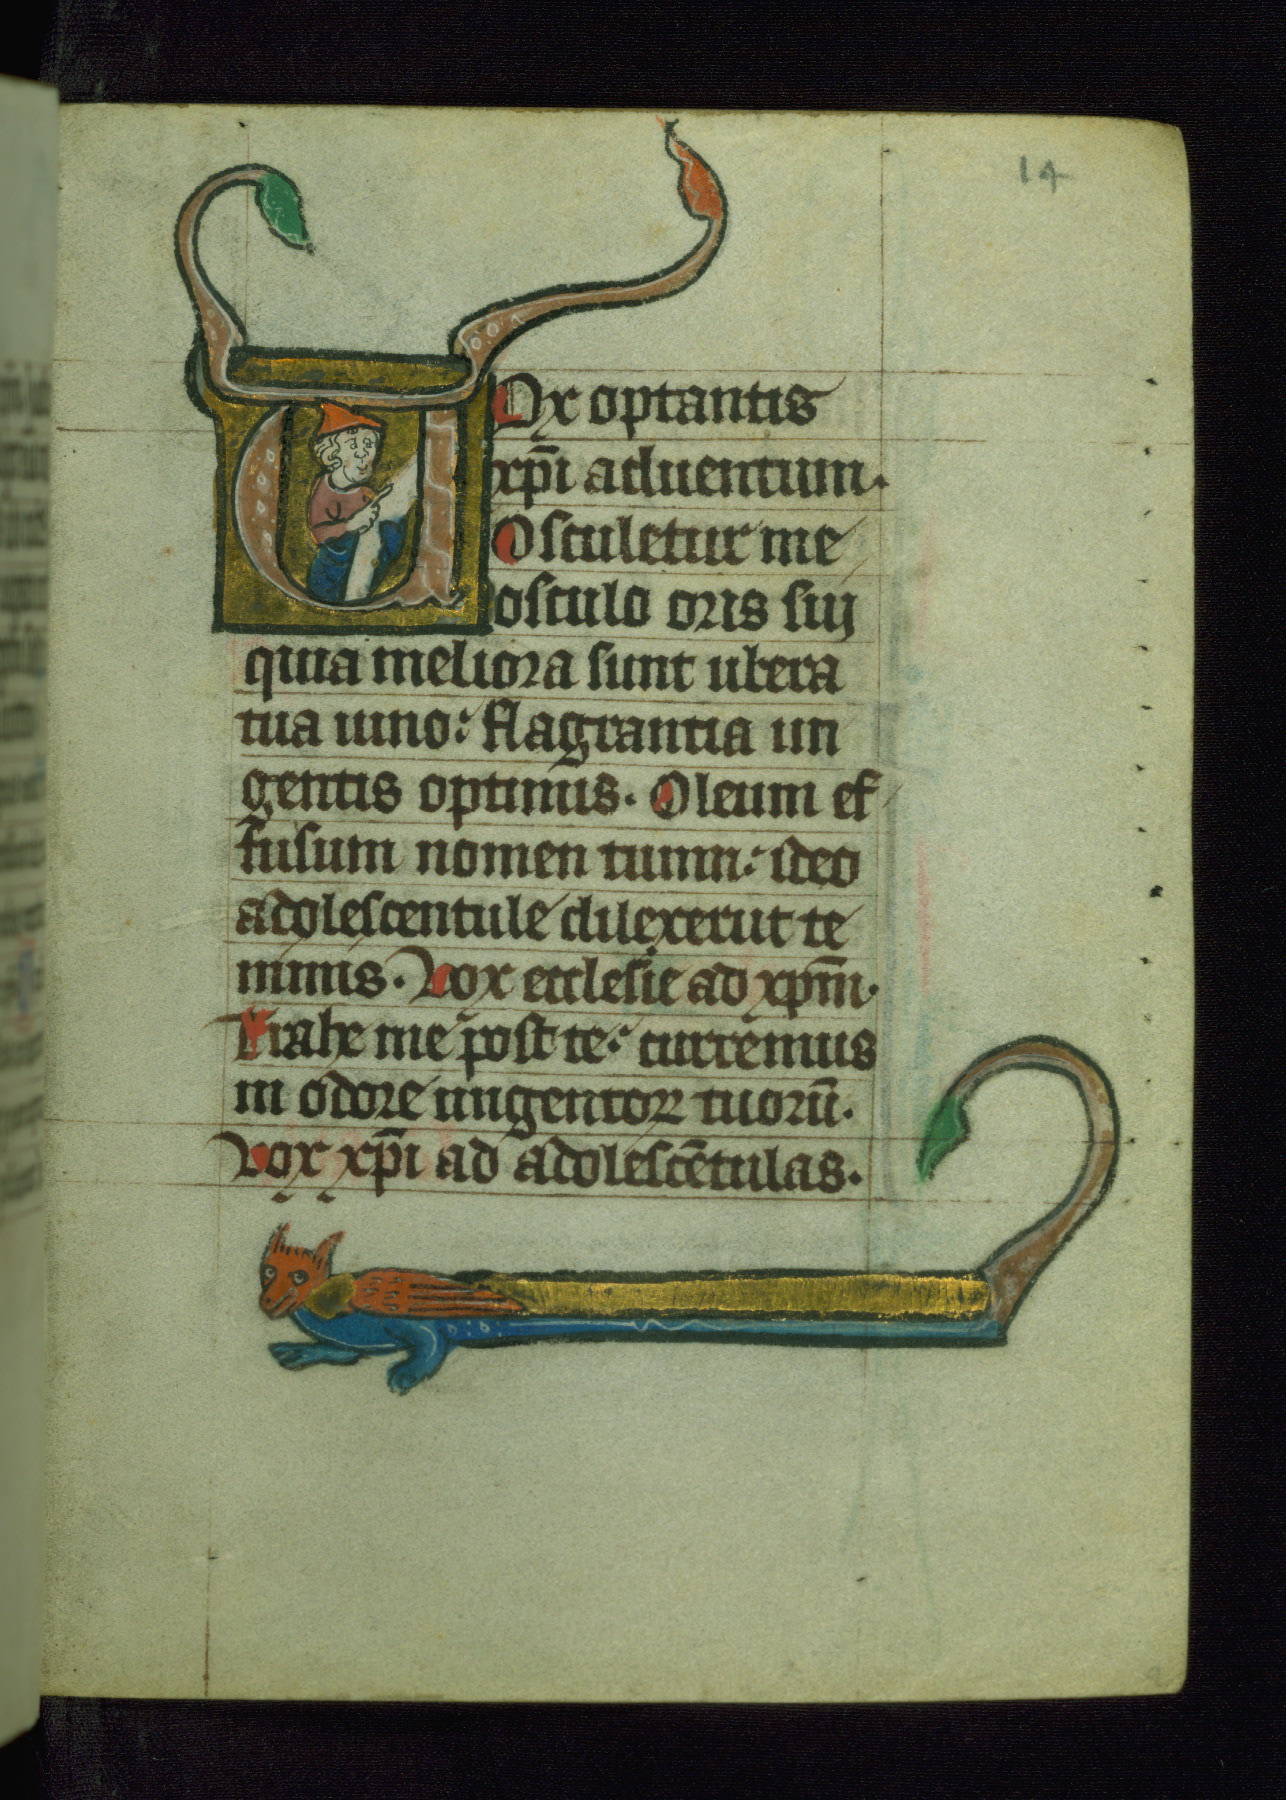 14
VOx optantis
xp̄i aduentum.
Osculetur me
osculo oris sui
quia meliora sunt ubera
tua uino: flagrantia un
gentis optimis. Oleum ef
fusum nomen tuum: ideo
adolescentule dilexerūt te
nimis. Vox ecclesie ad xp̄m.
Trahe me post te: curremus
in odore ungentoꝝ tuorū.
Vox xp̄i ad adolescētulas.